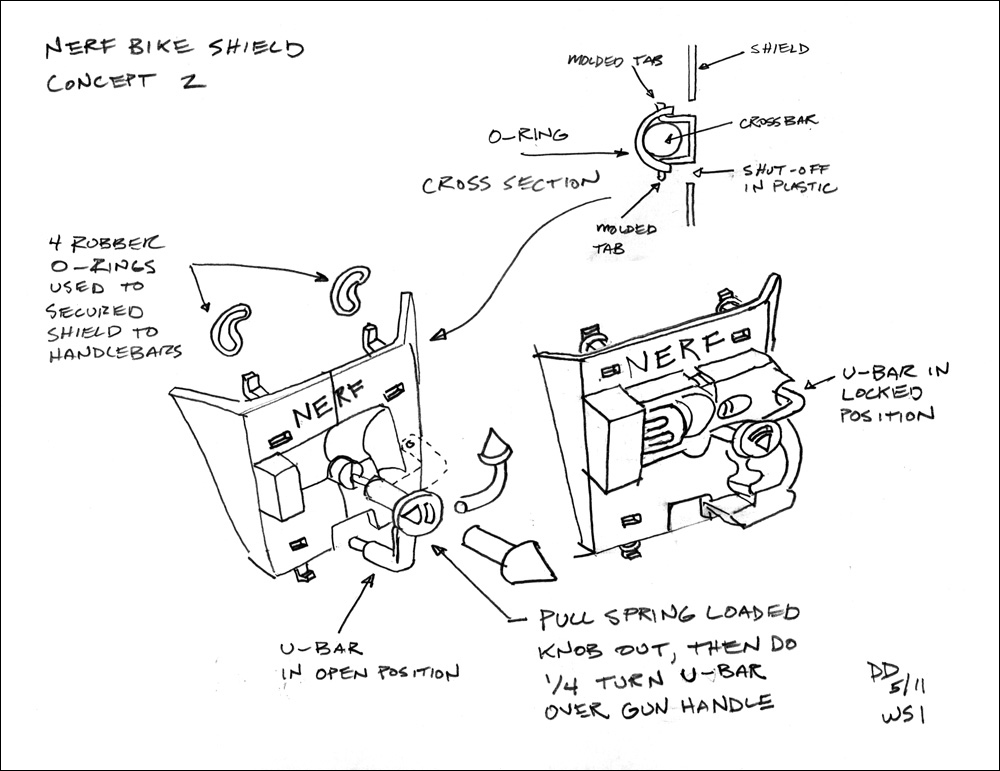 NERF BIKE SHIELD
CONCEPT 2
MOLDED TAB
SHIELD
O-RING
CROSSBAR
CROSS SECTION
SHUT-OFF
IN PLASTIC
MOLDED
TAB
4 RUBBER
O-RINGS
USED TO
SECURED
SHIELD TO
HANDLEBARS
NERF
NERF
U-BAR IN
LOCKED
POSITION
U-BAR
IN OPEN POSITION
PULL SPRING LOADED
KNOB OUT, THEN DO
1/4 TURN U-BAR
OVER GUN HANDLE
DD
5/11
WSI